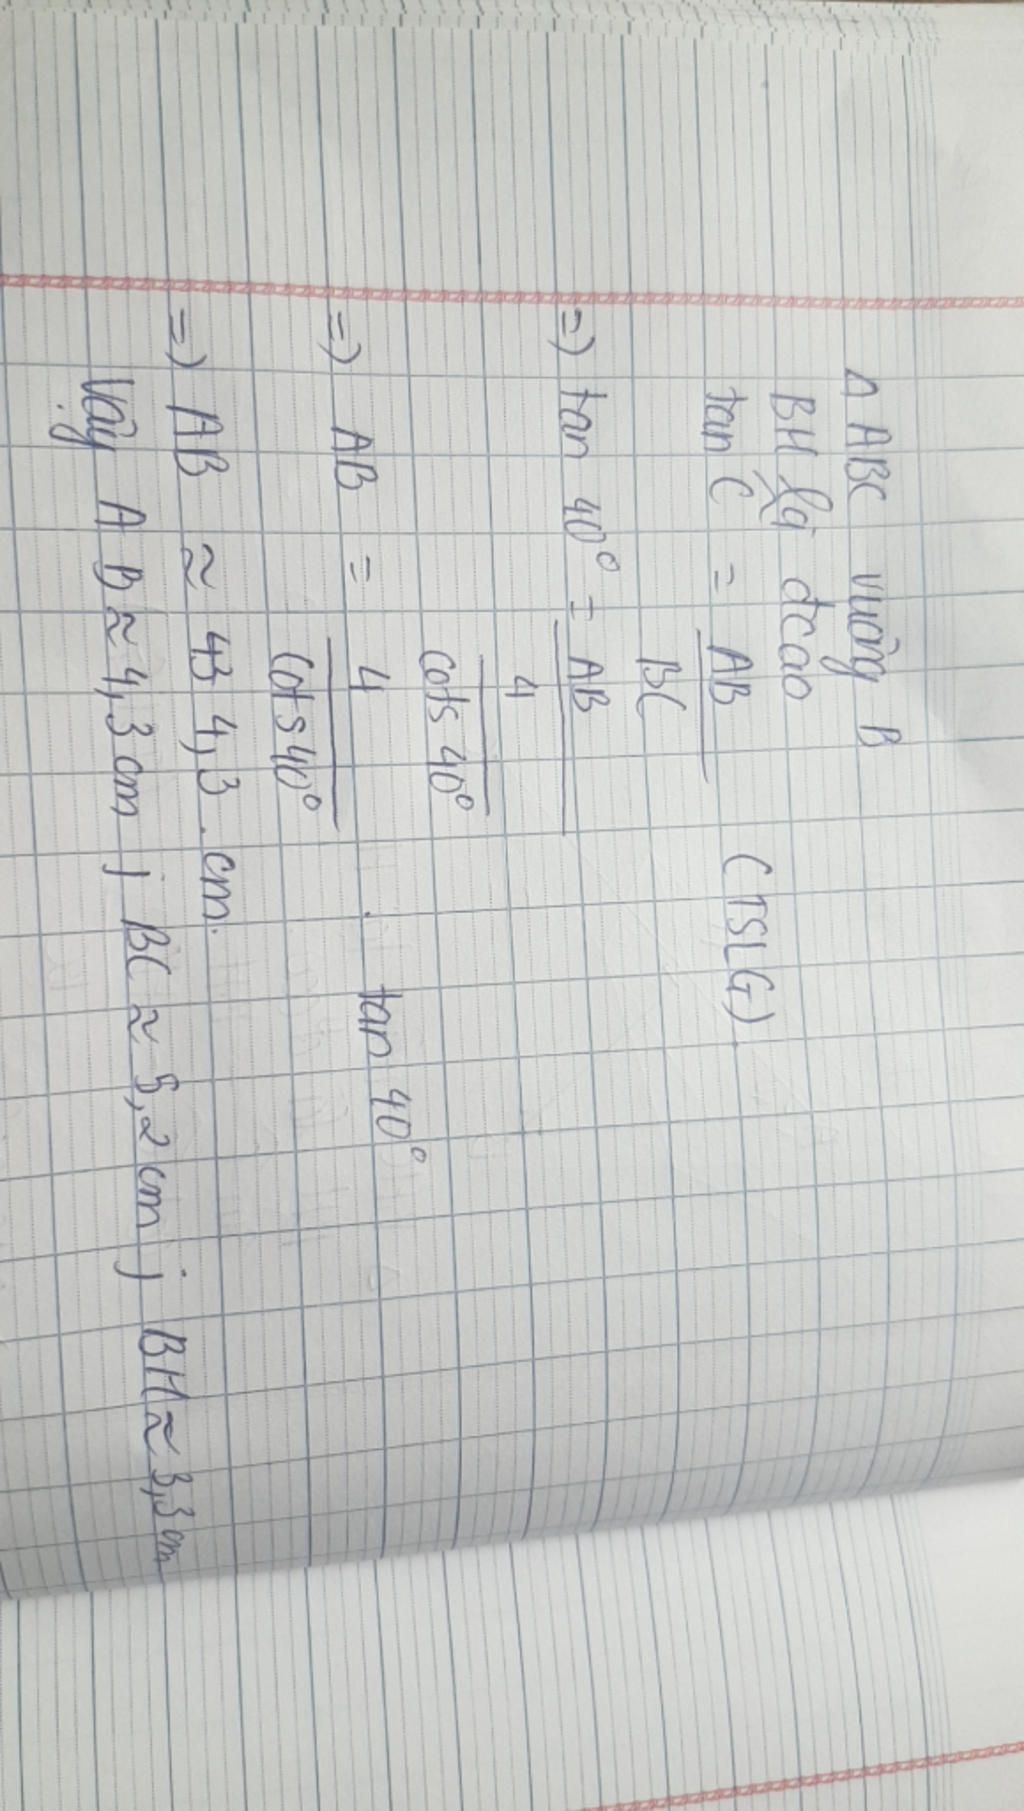 Δ ABC vuông B
BH là đcao
tan C = AB (TSLG)
BC
=) tan 40° = AB
4
cos 40°
=) AB = 4 . tan 40°
cos 40°
=) AB ≈ 4,3 cm.
Vậy AB ≈ 4,3 cm ; BC ≈ 5,2 cm ; BH ≈ 3,3 cm